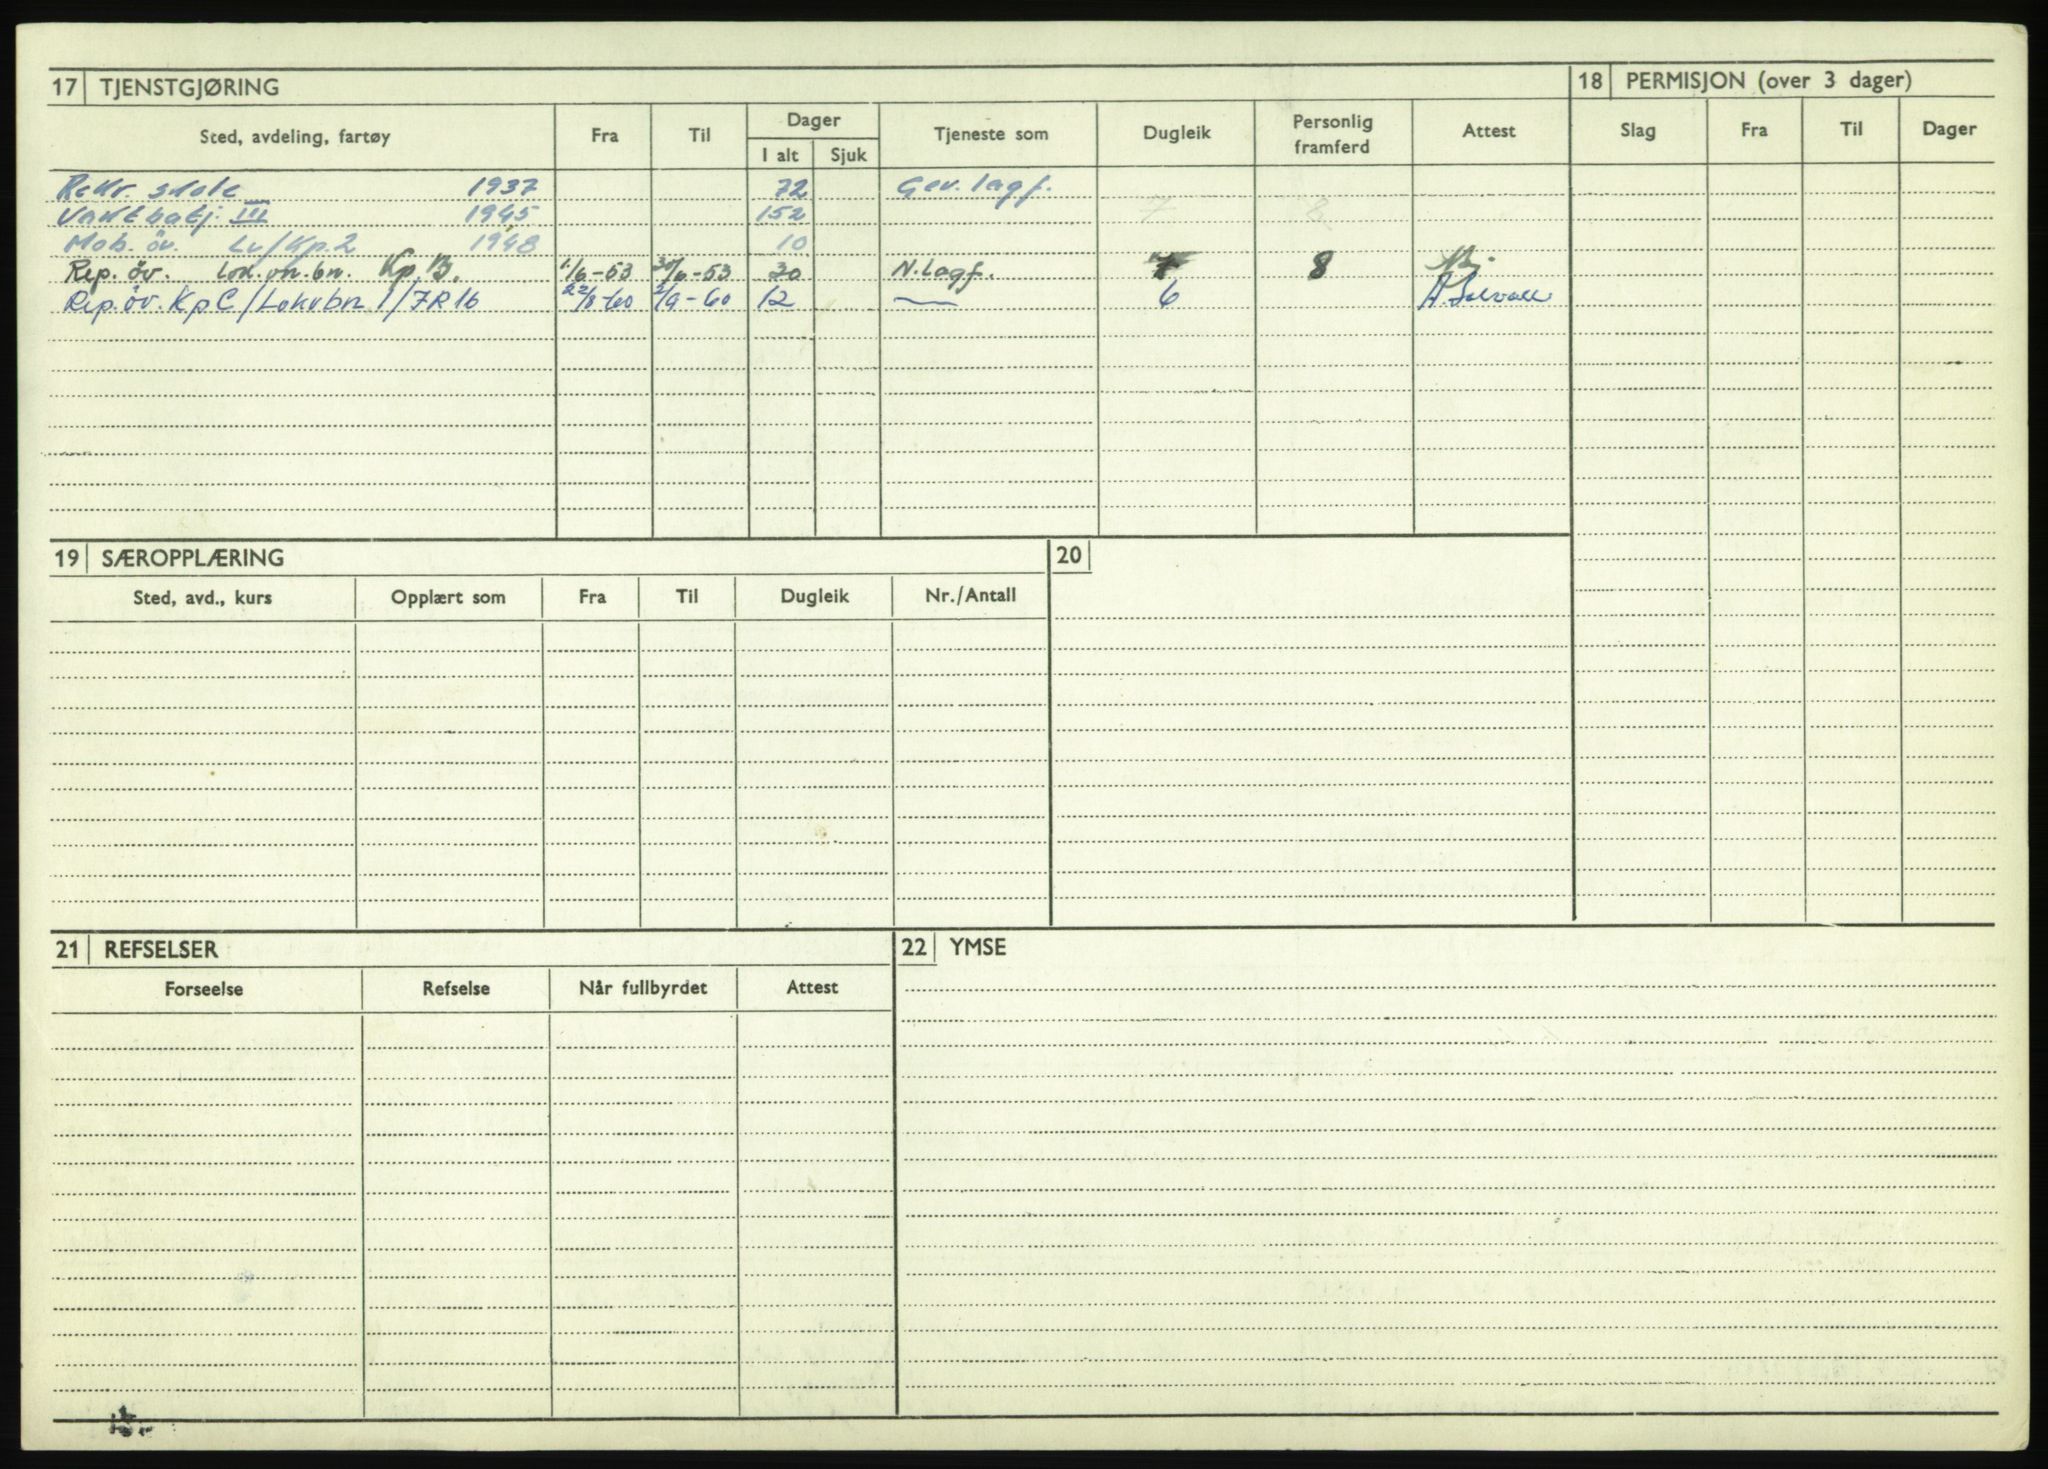 17 TJENSTGJØRING
18 PERMISJON (over 3 dager)
Sted, avdeling, fartøy Fra Til Dager Tjeneste som Dugleik Personlig framferd Attest Slag Fra Til Dager
I alt Sjuk
Rekr. skole 1937 72 Gev. lagf.
Vaktbatj. III 1945 152 7 8
Mob. öv. Lv/Kp. 2 1948 10
Rep. öv. Lok. vn. bn. Kp. B. 1/6-53 30/6-53 30 N. lagf. 7 8
Rep. öv. Kp C/Lokvbn 1/IR 16 22/8-60 2/9-60 12 — 6
19 SÆROPPLÆRING
20
Sted, avd., kurs Opplært som Fra Til Dugleik Nr./Antall
21 REFSELSER
22 YMSE
Forseelse Refselse Når fullbyrdet Attest